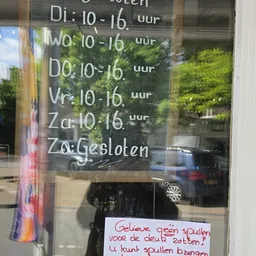 gesloten
Di: 10-16. uur
Wo: 10-16. uur
DO: 10-16. uur
Vr: 10-16. uur
Za: 10-16. uur
Zo: Gesloten
Gelieve géén spullen
voor de deur zetten!
U kunt spullen brengen